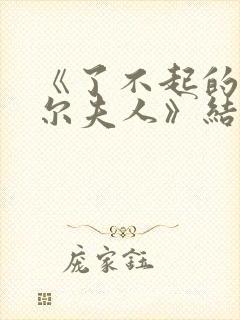 《了不起的
尔夫人》结
庞家钰